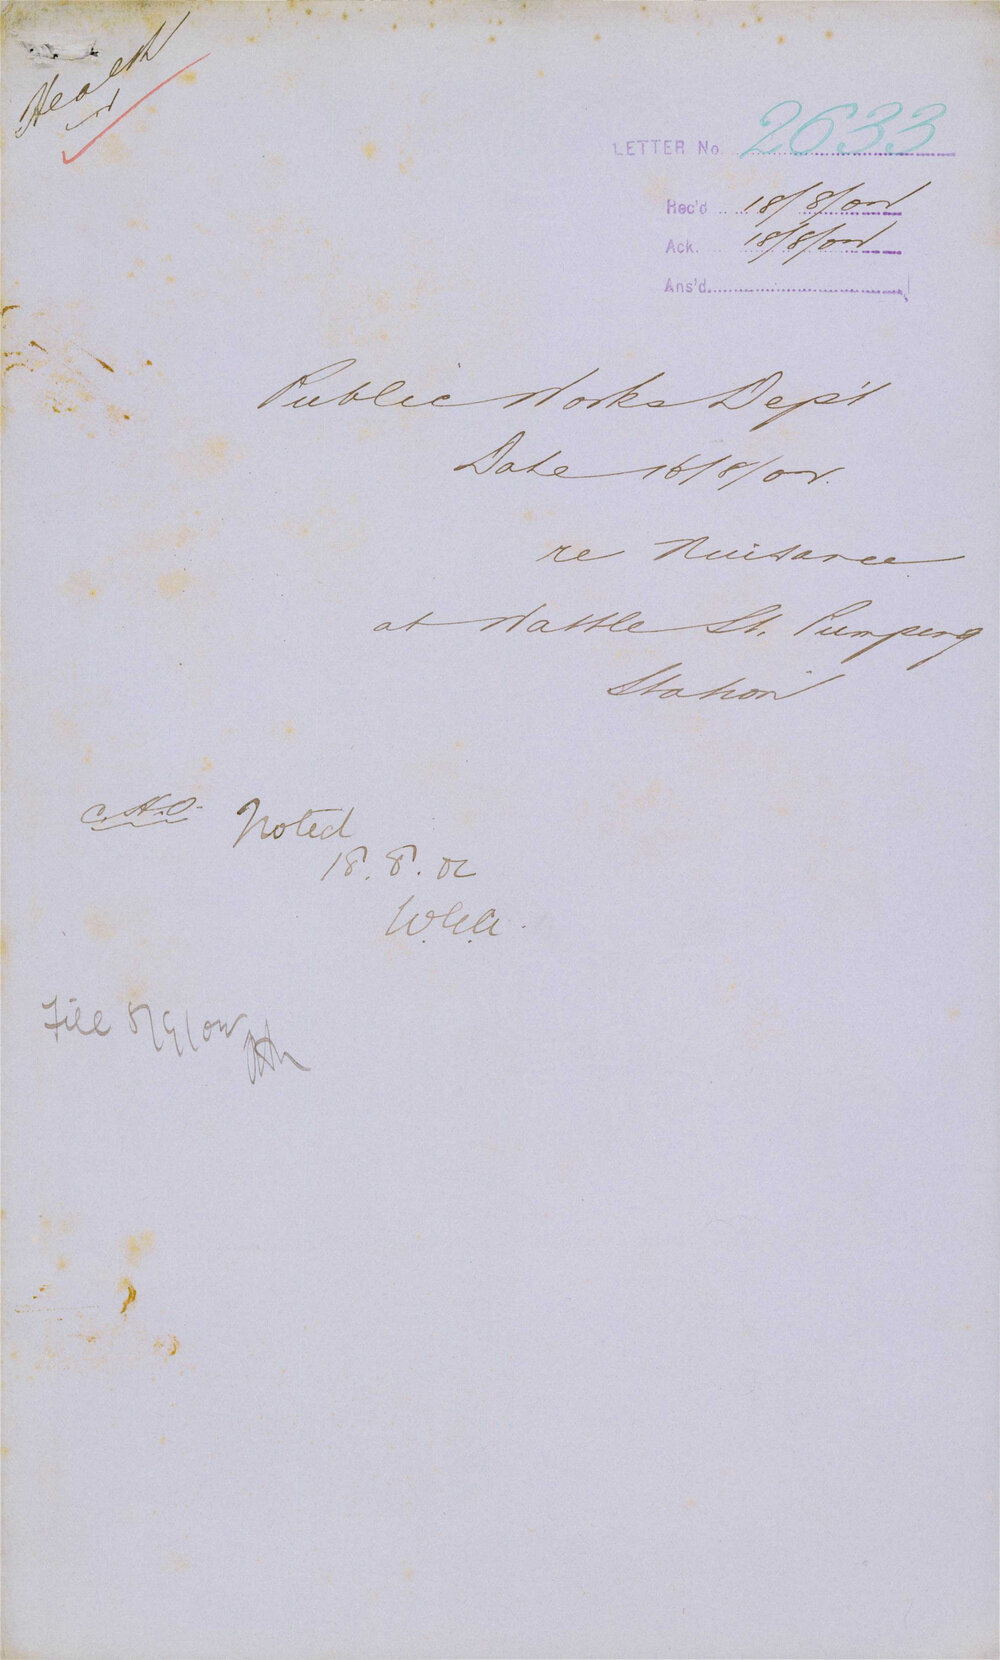 Health
LETTER No. 2633
Rec'd 18/8/02
Ack. 18/8/02
Ans'd.
Public Works Dep't
Date 16/8/02.
re Nuisance
at Wattle St. Pumping
Station
C.H.O. Noted
18.8.02
W.G.A.
File 8/9/02